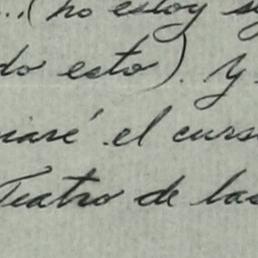 ..(no estoy
do esto). Y
el curs
Teatro de las